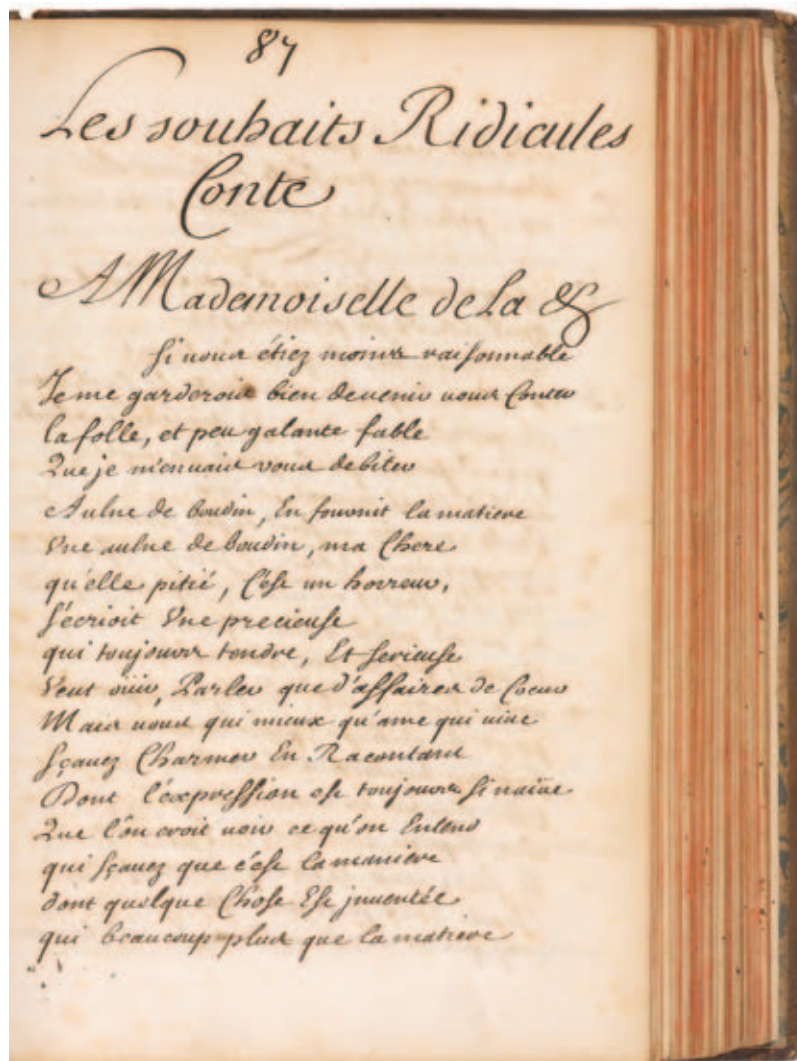 87
Les souhaits Ridicules
Conte
A Mademoiselle de La &
si vous étiez moins raisonnable
Je me garderois bien de venir vous Conter
la folle, et peu galante fable
Que je m'envais vous debiter
Aulne de boudin, En fournit la matiere
Une aulne de boudin, ma Chere
qu'elle pitié, C'est un horreur,
s'écrioit Une precieuse
qui toujours tendre, Et serieuse
Veut ouir, Parler que d'affaires de Coeur
Mais vous qui mieux qu'ame qui vive
sçavez Charmer En Racontant
Dont l'expression est toujours si naïve
Que l'on croit voir ce qu'on Entend
qui sçavez que c'est la maniere
dont quelque Chose Est inventée
qui beaucoup plus que la matiere